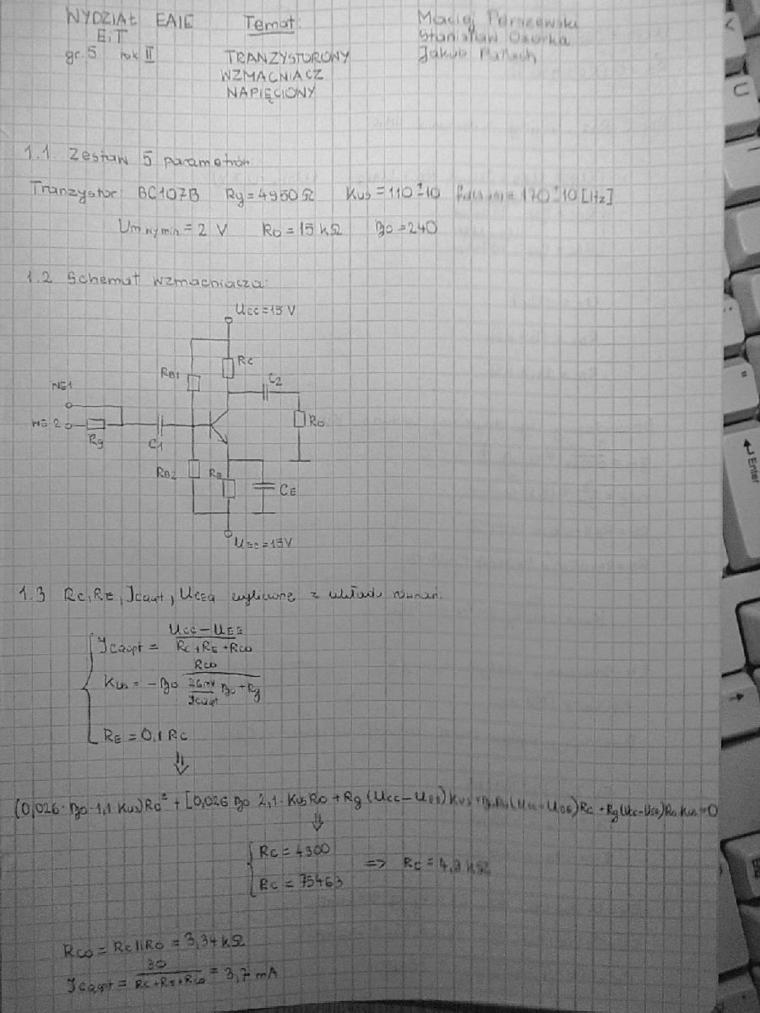 WYDZIAŁ EAIE
EiT
gr. 5 rok II
Temat:
TRANZYSTOROWY
WZMACNIACZ
NAPIĘCIOWY
Maciej
Stanisław
Jakub
1.1 Zestaw 5 parametrów
Tranzystor: BC107B Rg=4950Ω Kus=110±10 =170±10[Hz]
Um wy min=2 V Ro=15 kΩ βo=240
1.2 Schemat wzmacniacza:
Ucc=15 V
RC
RB1
C2
WE1
WE2
Rg
C1
Ro
RB2
RE
CE
UEE=15V
1.3 RC, RE, ICQopt, UCEQ wyliczone z układu równań.
ICQopt = UCC-UEE / RC+RE+RCO
Kus = -βo RCO / 26mV/ICQopt βo+Rg
RE = 0,1 RC
⇓
(0,026·βo·1,1 Kus)RC² + [0,026 βo 2,1·Kus Ro + Rg (Ucc-UEE) Kus + βo Ro(Ucc-UEE)] RC + Rg(Ucc-UEE)Ro Kus=0
⇓
RC = 4300
RC = 75463
=> RC = 4,3 kΩ
RCO = RC||RO = 3,34 kΩ
ICQopt = 30 / RC+RE+RCO = 3,7 mA
Enter